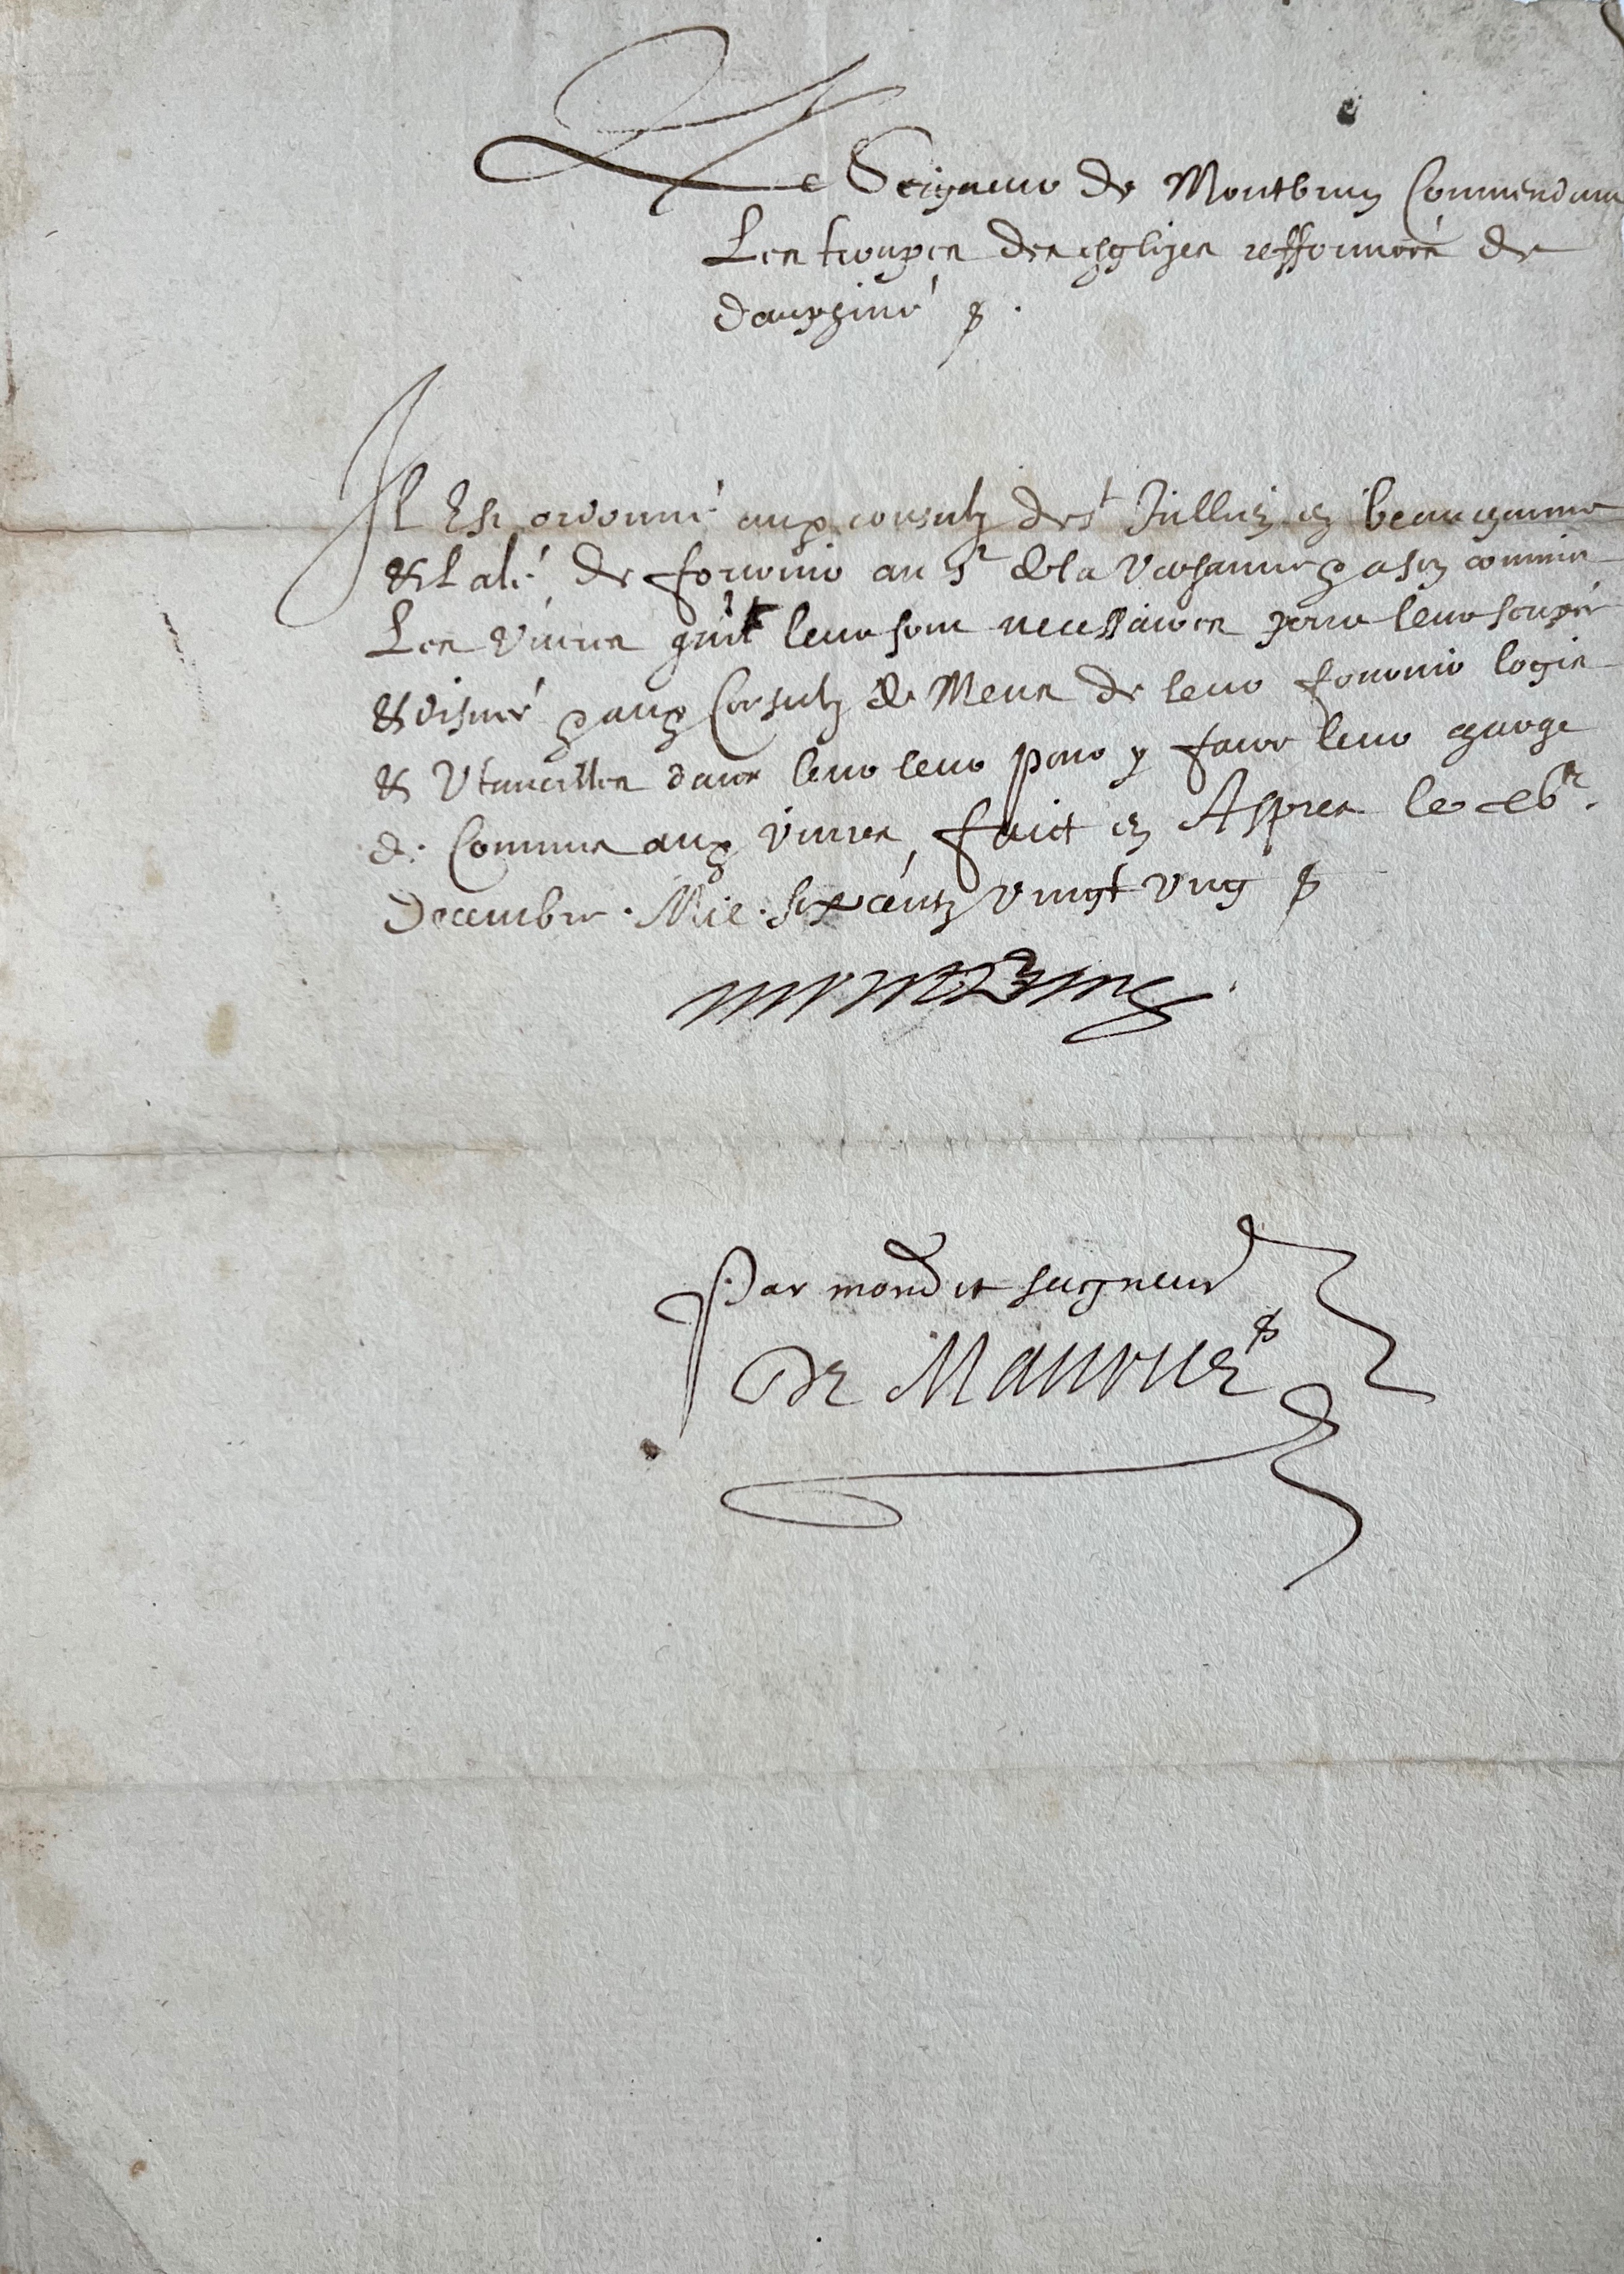 Le Seigneur de Montbrun Commendant
Les trouppes des esglizes refformées de
dauphiné
Il Est ordonné aux consulz de St Jullien en beauchaine
& de fornir au Sr de la a son commis
Les vivres qu'il leur sont necessaires pour leur souper
& disné & aux Consulz de Meus de leur fournir logis
& Utancilles dans leur leur pour y faire leur
de Commis aux vivres, faict en Aspres le
decembre. Mil. six centz vingt ung
montbrun
Par mondit seigneur
De Manviel